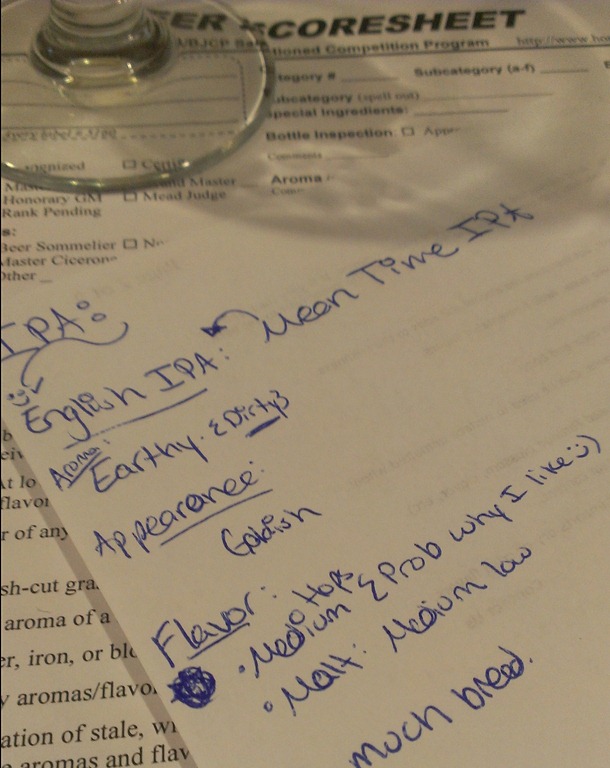 EER SCORESHEET
/BJCP Sanctioned Competition Program http://www.ho
tegory # Subcategory (a-f)
ubcategory (spell out)
pecial Ingredients:
Bottle Inspection: ☐ App
Comments
ognized ☐ Certif
Mas nd Master
Honorary GM ☐ Mead Judge
Rank Pending
Aroma
Com
s:
Beer Sommelier ☐ No
Master Cicerone
Other
IPA:
English IPA: Mean Time IPA
Aroma:
Earthy. {Dirty}
Appearance:
Goldish
Flavor:
• Medium Hops {Prob why I like :)}
• Malt: Medium low
much bread.
b
eiv
At lo
flavor
r of any
sh-cut gra
aroma of a
er, iron, or blo
y aromas/flavo
ation of stale, wi
e aromas and flav